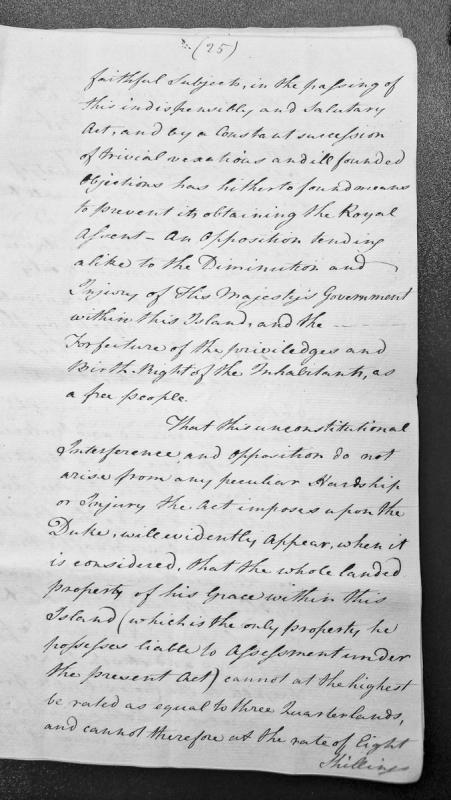 (25)
faithful Subjects, in the passing of
this indispensibly and Salutary
Act, and by a Constant succession
of trivial vexatious and ill founded
Objections has hitherto found means
to prevent its obtaining the Royal
Assent - An Opposition tending
alike to the Diminution and
Injury of His Majesty's Government
within this Island, and the
Forfeiture of the priviledges and
Birth Right of the Inhabitants, as
a free people.
That this unconstitutional
Interference and Opposition do not
arise from any peculiar Hardship
or Injury the Act imposes upon the
Duke, will evidently Appear, when it
is considered, that the whole landed
property of his Grace within this
Island (which is the only property he
possesses liable to Assessment under
the present Act) cannot at the highest
be rated as equal to three Quarterlands,
and cannot therefore at the rate of Eight
Shillings